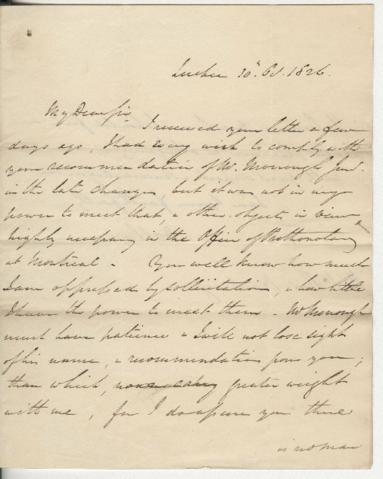 Quebec 30th Oct. 1826.
My Dear Sir
I received your letter a few
days ago, I had every wish to comply with
your recommendation of Mr. Monough Junr.
in the late changes, but it was not in my
power to meet that, & other objects in view
highly necessary in the Office of Prothonotary
at Montreal - You well know how much
I am oppressed by solicitation, & how little
I have the power to meet them. - Mr
must have patience & I will not lose sight
of his name, & recommendation from you;
than which, greater weight
with me, for I do assure you there
is no man